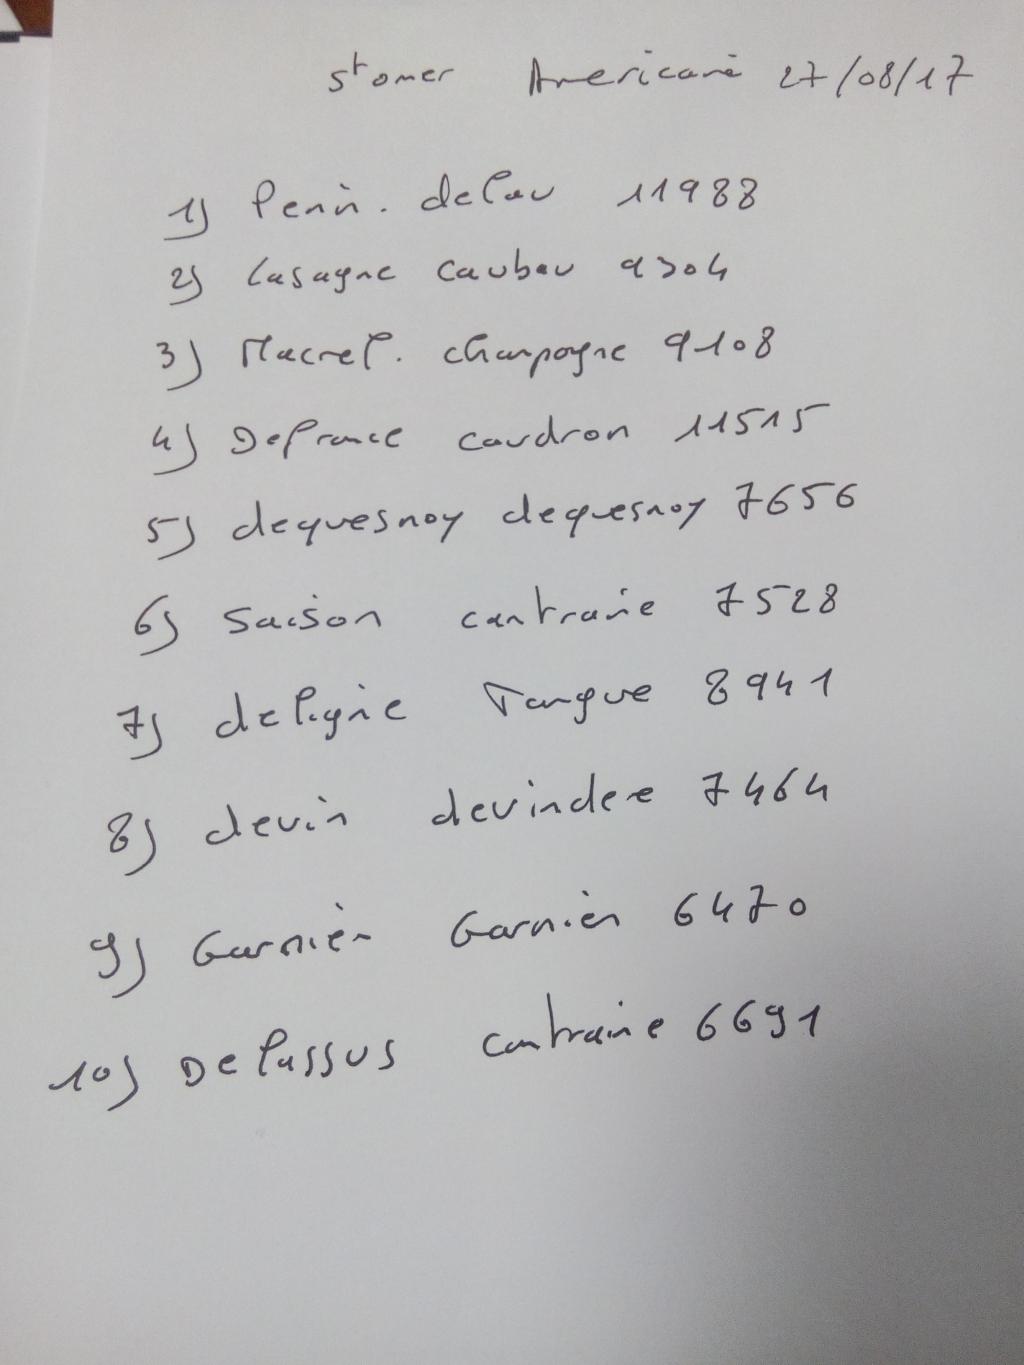 stomer Americaine 27/08/17
1) Penin. delau 11988
2) Lasagne Caubau 9304
3) Macrel. champagne 9108
4) Defrance caudron 11515
5) dequesnoy dequesnoy 7656
6) Saison cantraine 7528
7) deligne Tangue 8941
8) devin devindere 7464
9) Garnier Garnier 6470
10) Delassus cantraine 6691